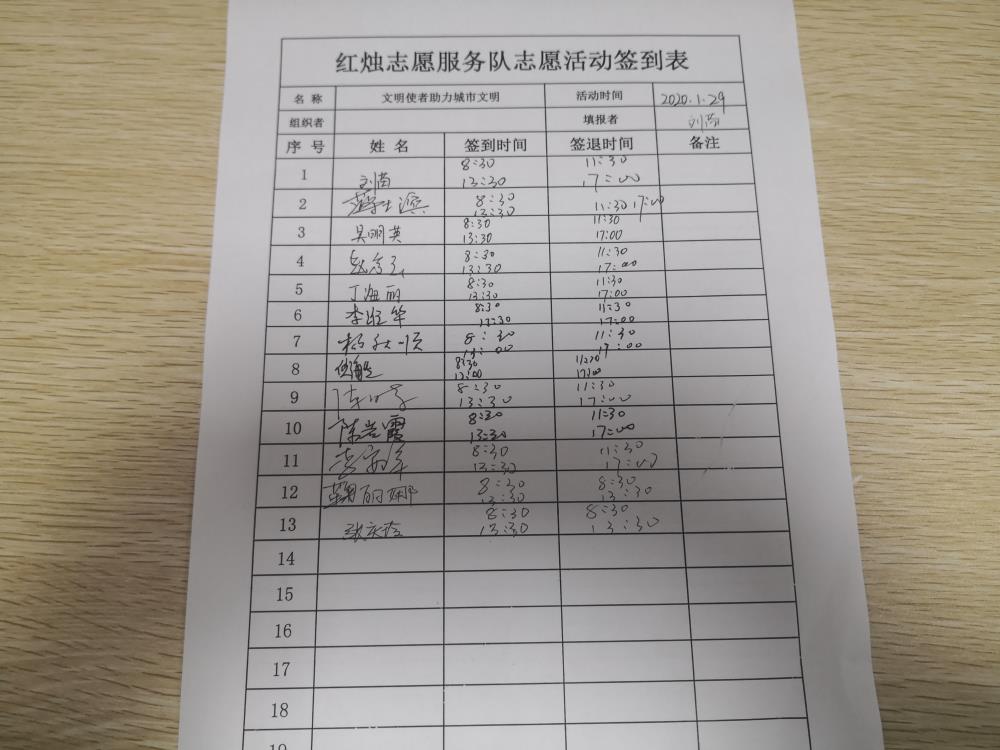 红烛志愿服务队志愿活动签到表
名 称 文明使者助力城市文明 活动时间 2020.1.29
组织者 填报者 刘苗
序 号 姓 名 签到时间 签退时间 备注
1 刘苗 8:30 13:30 11:30 17:00
2 8:30 13:30 11:30 17:00
3 吴明英 8:30 13:30 11:30 17:00
4 8:30 13:30 11:30 17:00
5 丁海丽 8:30 13:30 11:30 17:00
6 8:30 11:30 17:00
7 8:30 11:30 17:00
8 8:30 17:00
9 8:30 13:30 11:30 17:00
10 陈岩霞 8:30 13:30 11:30 17:00
11 8:30 13:30 11:30 17:00
12 鞠丽娜 8:30 13:30 8:30 13:30
13 张庆玲 8:30 13:30 8:30 13:30
14
15
16
17
18
19